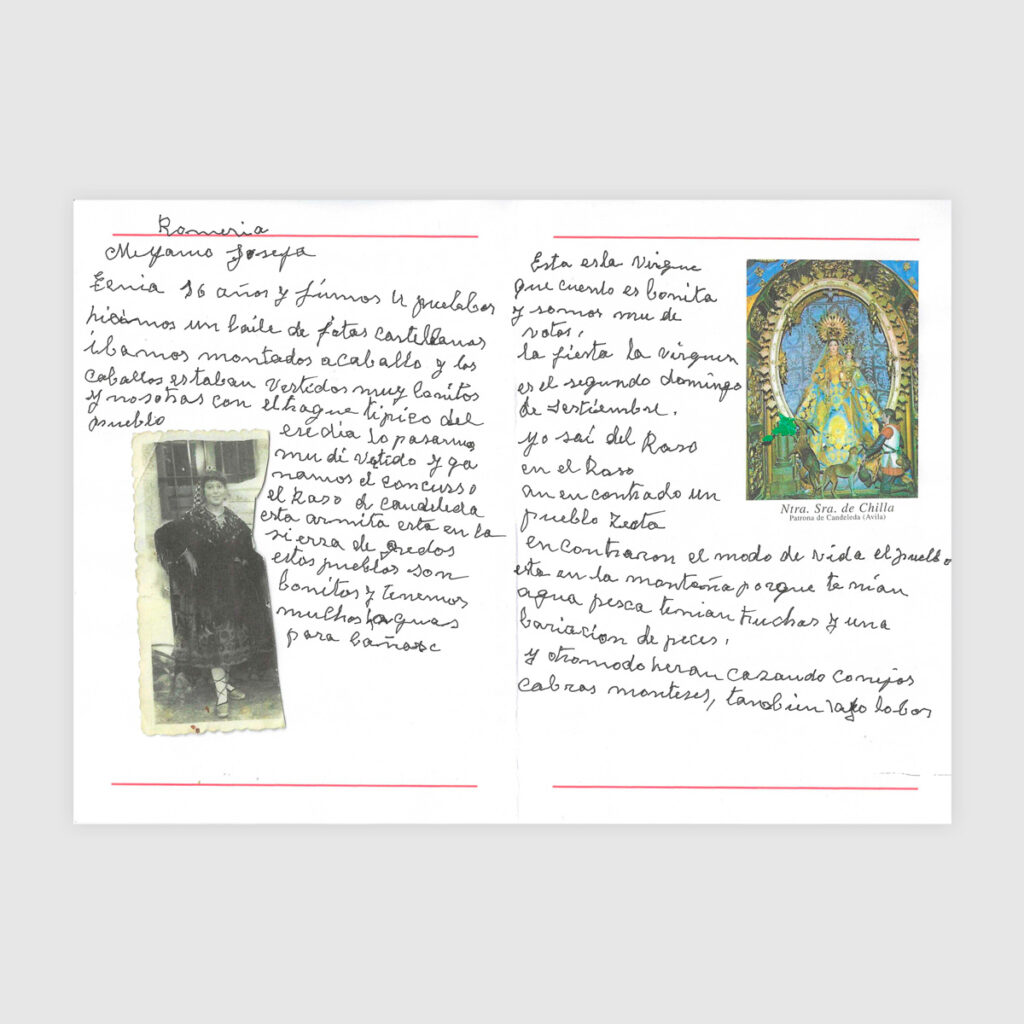 Romeria
Me llamo Josefa
Tenia 16 años y fúmos 12 pueblos
hicimos un baile de jotas castellanas
ibamos montados acaballo y los
caballos estaban vestidos muy bonitos
y nosotras con el trague tipico del
pueblo
ese dia lo pasamos
mu di vetido y ga
namos el concurso
el Raso d candeleda
esta armita esta en la
sierra de gredos
estos pueblos son
bonitos y tenemos
muchos aguas
para bañase
Esta esla Virgue
que cuento es bonita
y somos mu de
votas,
la fiesta la virguen
es el segundo domingo
de sertiembre.
yo saí del Raso
en el Raso
an en contrado un
pueblo Zelta
encontraron el modo de vida el pueblo
esta en la montaña porque te nían
agua pesca tenian truchas y una
bariacion de peces,
y otromodo heran cazando conejos
cabras monteses, tanbien lobos
Ntra. Sra. de Chilla
Patrona de Candeleda (Avila)